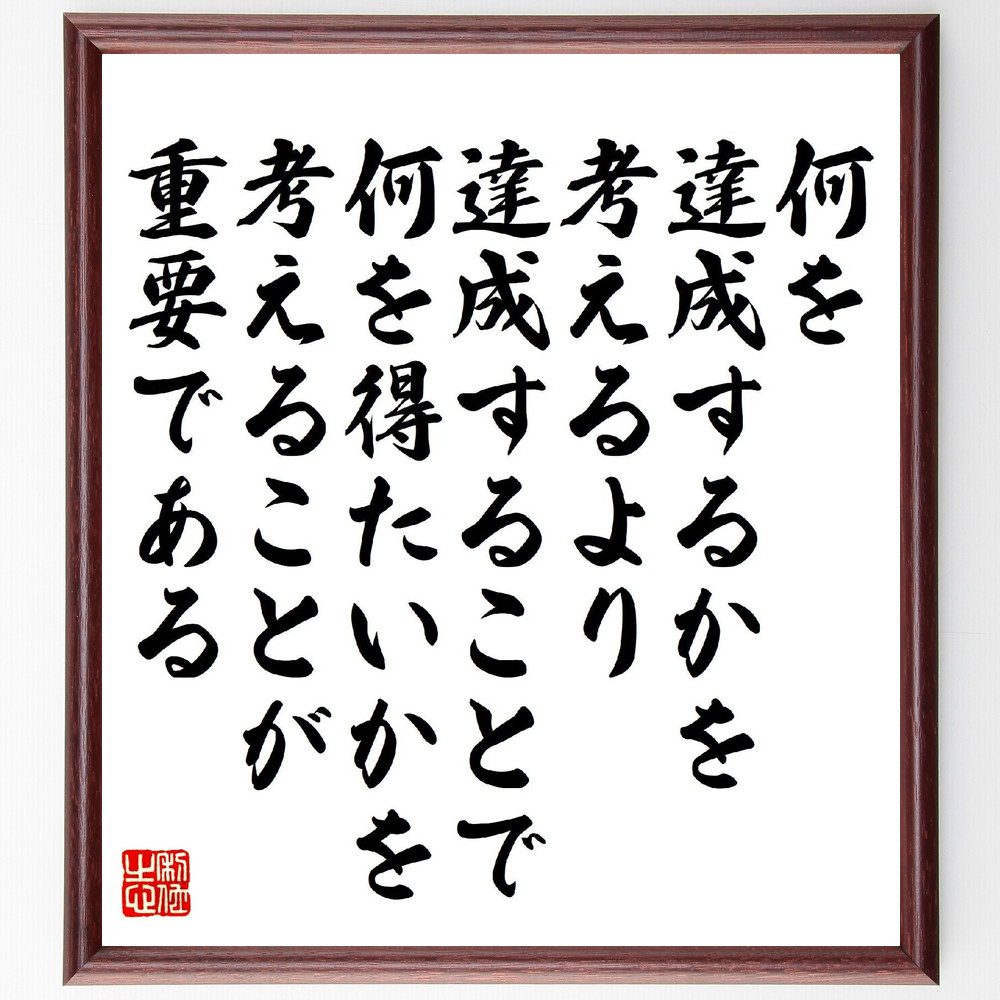 何を
達成するかを
考えるより
達成することで
何を得たいかを
考えることが
重要である